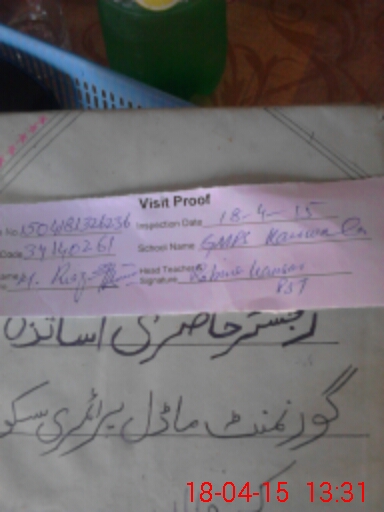 Visit Proof
No. 1504181326236 Inspection Date 18-4-15
Code 39140261 School Name GMPS
M. Riaz Head Teacher Signature
PST
رجسٹر حاضری اساتذہ
گورنمنٹ ماڈل پرائمری سکو
18-04-15 13:31